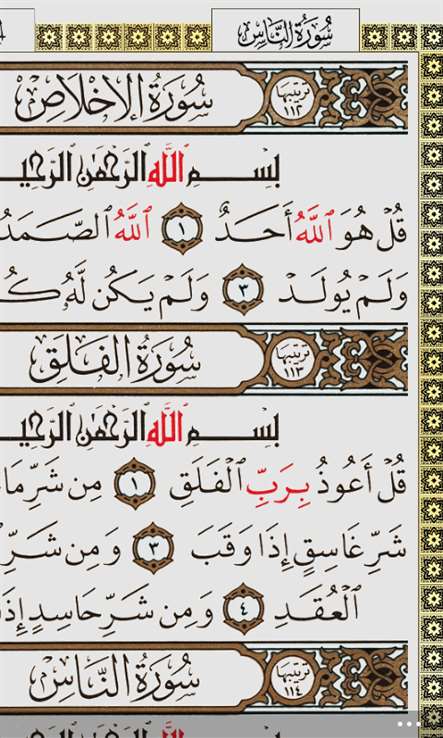 سُورَةُ النَّاسِ
سُورَةُ الإِخْلَاصِ ترتيبها ١١٢
بسم الله الرحمن الرحيـ
قُلْ هُوَ اللَّهُ أَحَدٌ ١ اللَّهُ الصَّمَدُ
وَلَمْ يُولَدْ ٣ وَلَمْ يَكُن لَّهُ كُـ
سُورَةُ الفَلَقِ ترتيبها ١١٣
بسم الله الرحمن الرحيـ
قُلْ أَعُوذُ بِرَبِّ الْفَلَقِ ١ مِن شَرِّ مَا
شَرِّ غَاسِقٍ إِذَا وَقَبَ ٣ وَمِن شَرِّ
الْعُقَدِ ٤ وَمِن شَرِّ حَاسِدٍ إِذَ
سُورَةُ النَّاسِ ترتيبها ١١٤